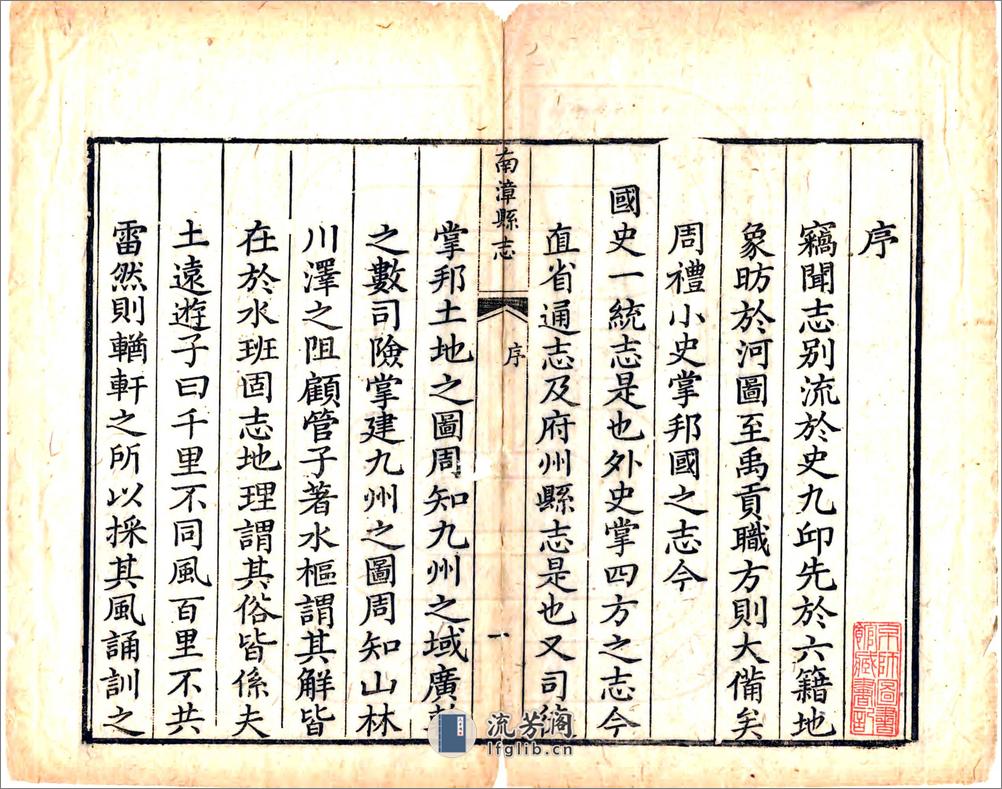 序
竊聞志別流於史九邱先於六籍地
象昉於河圖至禹貢職方則大備矣
周禮小史掌邦國之志今
國史一統志是也外史掌四方之志今
直省通志及府州縣志是也又司
南漳縣志
序
一
掌邦土地之圖周知九州之域廣
之數司險掌建九州之圖周知山林
川澤之阻顧管子著水樞謂其解皆
在於水班固志地理謂其俗皆係夫
土遠遊子曰千里不同風百里不共
雷然則輶軒之所以採其風誦訓之
流芳阁
lfglib.cn